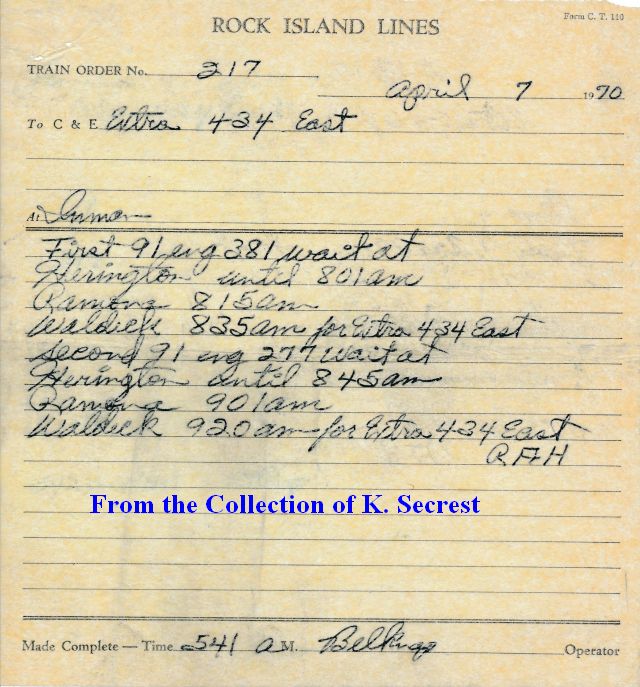 ROCK ISLAND LINES
Form C. T. 110
TRAIN ORDER No. 217
April 7 1970
To C & E Extra 434 East
At Inman
First 91 eng 381 wait at
Herington until 801am
Ramona 815am
Waldeck 835am for Extra 434 East
Second 91 eng 277 wait at
Herington until 845am
Ramona 901am
Waldeck 920am for Extra 434 East
RAH
From the Collection of K. Secrest
Made Complete — Time 541 a M. Operator